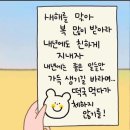 새해를 맞아
복 많이 받아라
내년에도 친하게
지내자
내년에는 좋은 일들만
가득 생기길 바라며...
떡국 먹다가
체하지
않기를!